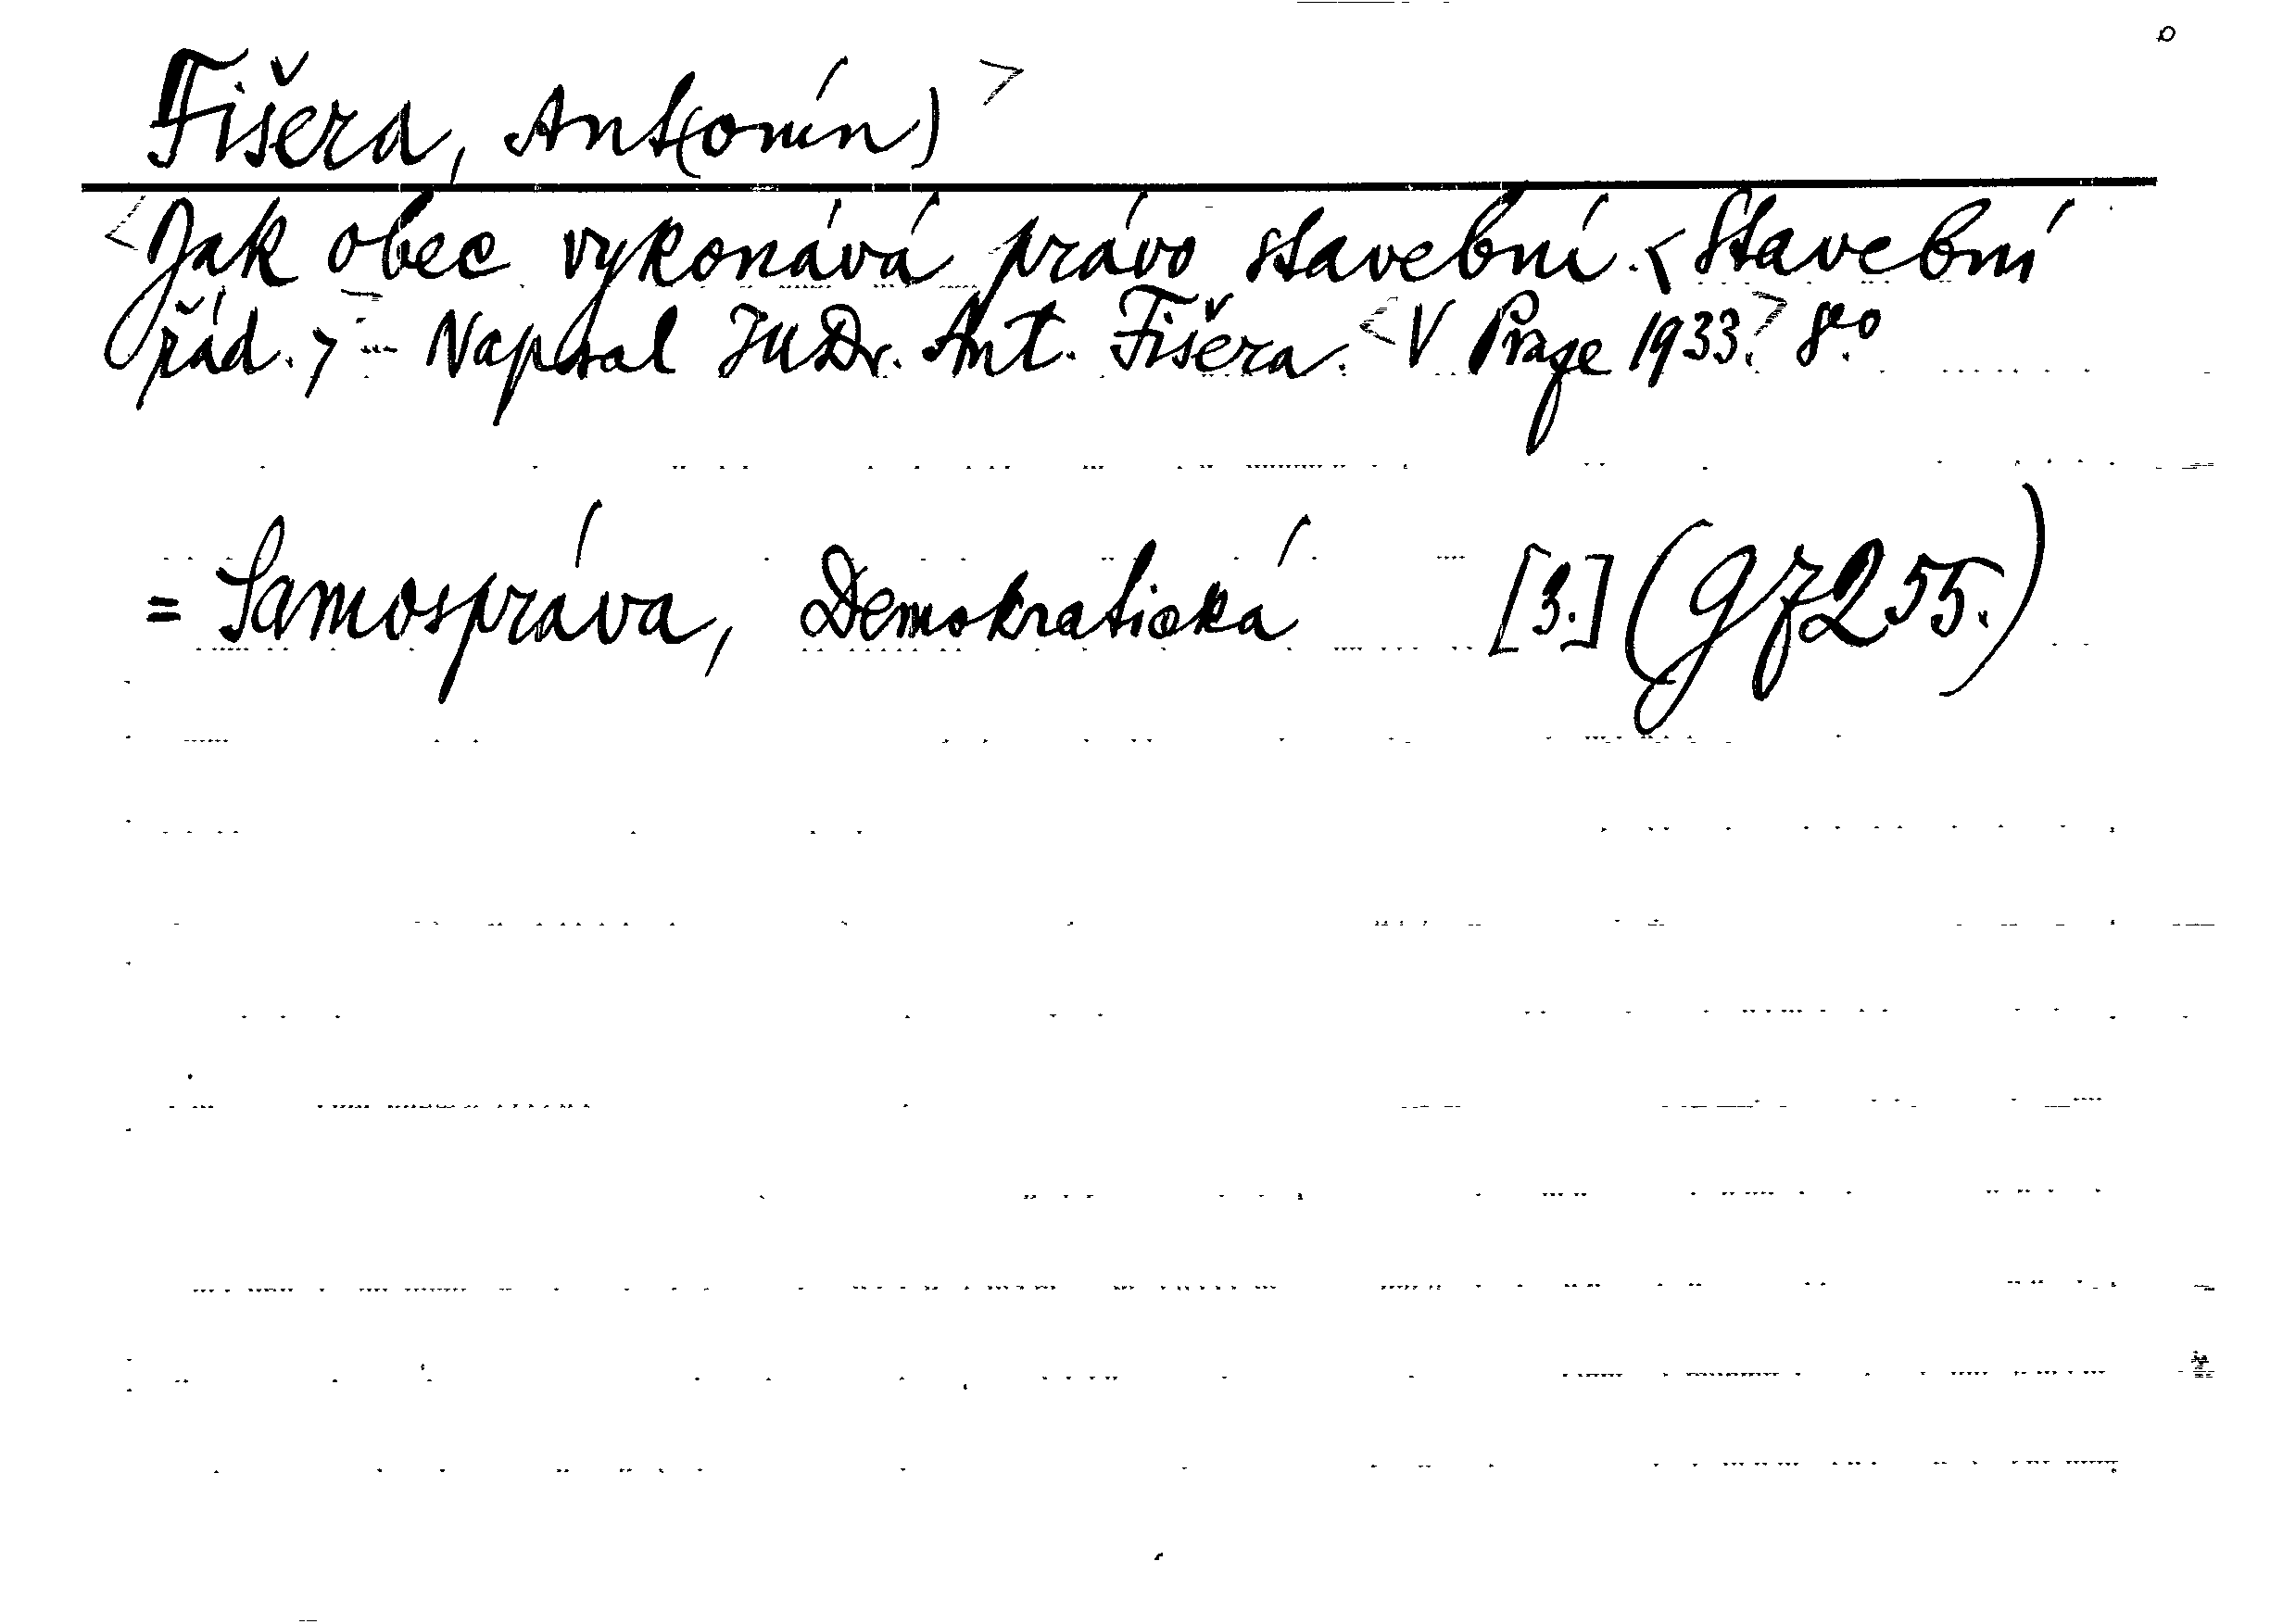 Fišera, Ant(onín)
Jak obec vykonává právo stavební. < Stavební
řád. > - Napsal JUDr. Ant. Fišera. V Praze 1933. 8.o
= Samospráva, Demokratická [3.] (gf 255.)